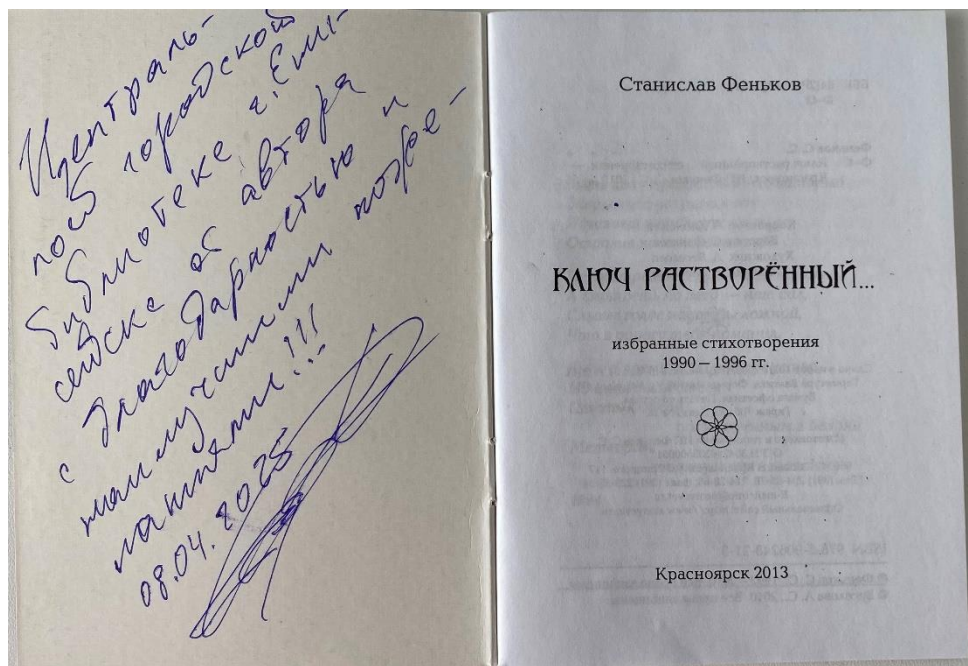 Централь-
ной городской
библиотеке г. Ени-
сейска от автора
с благодарностью и
наилучшими поже-
ланиями!!!
08.04.2025
Станислав Феньков
КЛЮЧ РАСТВОРЁННЫЙ...
избранные стихотворения
1990 – 1996 гг.
Красноярск 2013